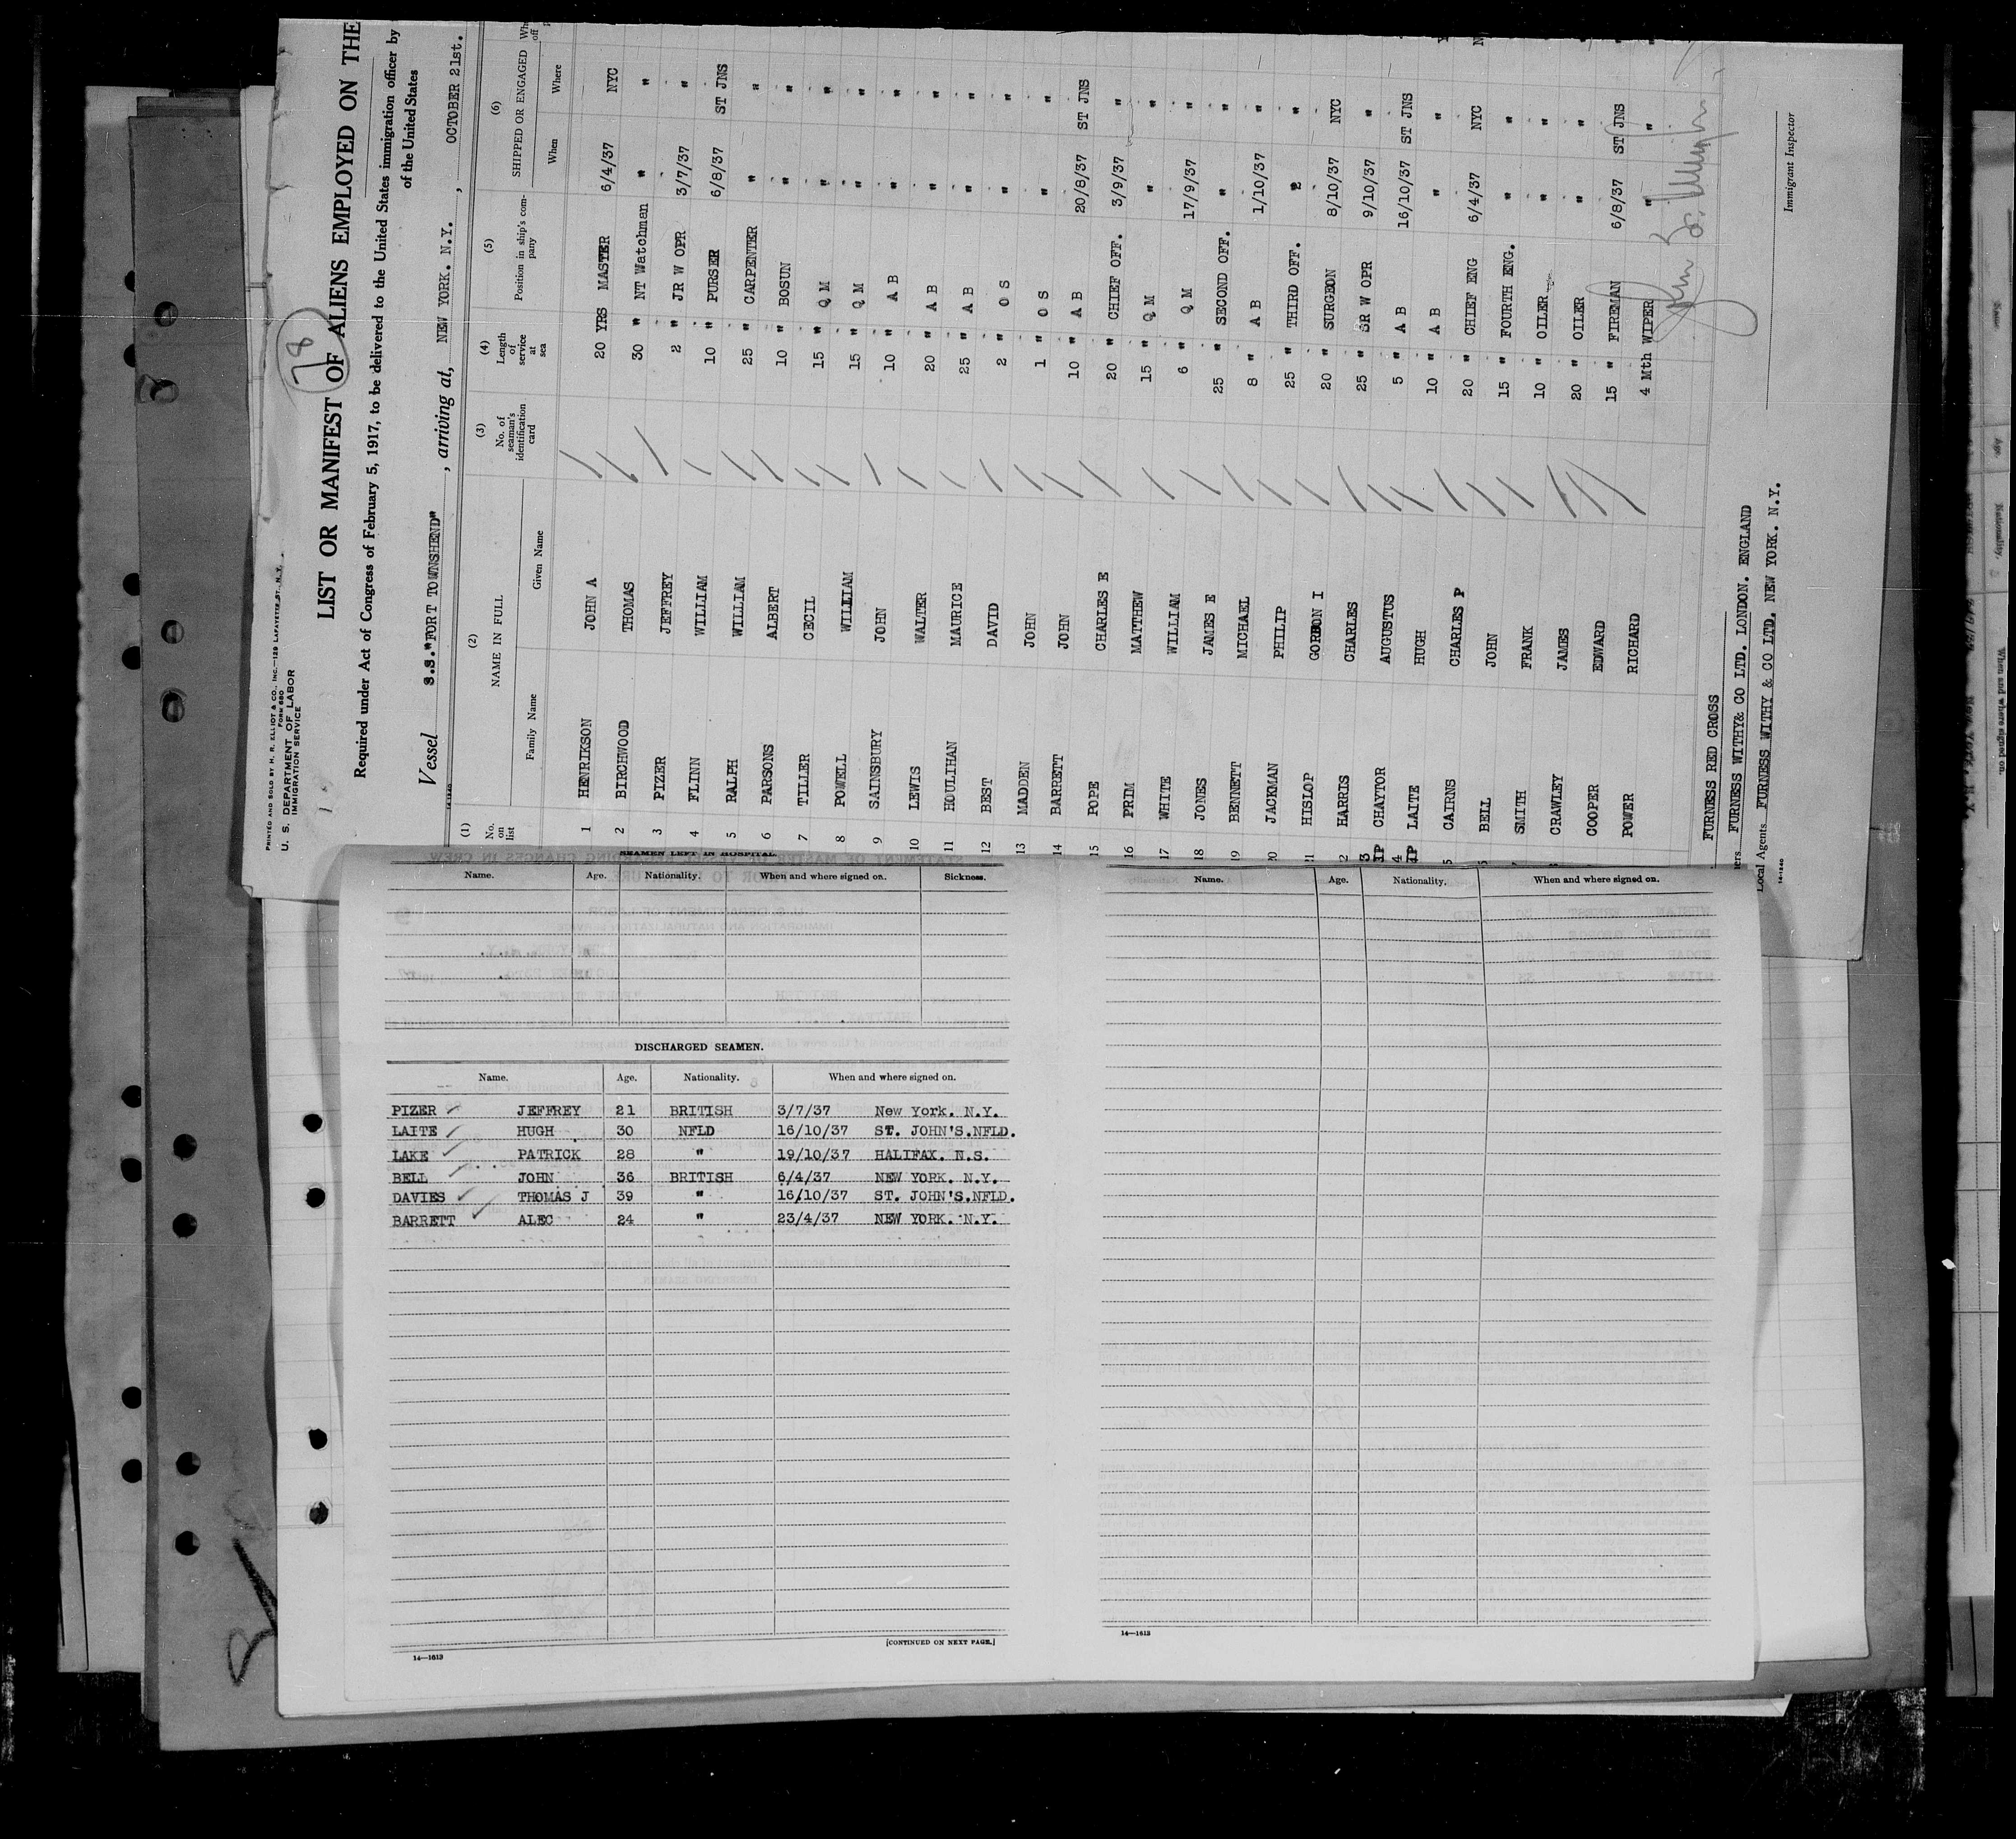 PRINTED AND SOLD BY H. R. ELLIOT & CO., INC.—129 LAFAYETTE ST., N.Y.
FORM 680
U. S. DEPARTMENT OF LABOR
IMMIGRATION SERVICE
78
LIST OR MANIFEST OF ALIENS EMPLOYED ON THE
Required under Act of Congress of February 5, 1917, to be delivered to the United States immigration officer by
of the United States
Vessel S.S."FORT TOWNSHEND", arriving at, NEW YORK. N.Y., OCTOBER 21st.
(1) (2) (3) (4) (5) (6)
No. on list NAME IN FULL No. of seaman's identification card Length of service at sea Position in ship's company SHIPPED OR ENGAGED
Family Name Given Name When Where
1 HENRIKSON JOHN A 20 YRS MASTER 6/4/37 NYC
2 BIRCHWOOD THOMAS 30 " NT Watchman " "
3 PIZER JEFFREY 2 " JR W OPR 3/7/37 "
4 FLINN WILLIAM 10 " PURSER 6/8/37 ST JNS
5 RALPH WILLIAM 25 " CARPENTER " "
6 PARSONS ALBERT 10 " BOSUN " "
7 TILLER CECIL 15 " Q M " "
8 POWELL WILLIAM 15 " Q M " "
9 SAINSBURY JOHN 10 " A B " "
10 LEWIS WALTER 20 " A B " "
11 HOULIHAN MAURICE 25 " A B " "
12 BEST DAVID 2 " O S " "
13 MADDEN JOHN 1 " O S " "
14 BARRETT JOHN 10 " A B 20/8/37 ST JNS
15 POPE CHARLES E 20 " CHIEF OFF. 3/9/37 "
16 PRIM MATTHEW 15 " Q M " "
17 WHITE WILLIAM 6 " Q M 17/9/37 "
18 JONES JAMES E 25 " SECOND OFF. " "
19 BENNETT MICHAEL 8 " A B 1/10/37 "
20 JACKMAN PHILIP 25 " THIRD OFF. " "
21 HISLOP GORDON I 20 " SURGEON 8/10/37 NYC
2 HARRIS CHARLES 25 " SR W OPR 9/10/37 "
3 CHAYTOR AUGUSTUS 5 " A B 16/10/37 ST JNS
4 LAITE HUGH 10 " A B " "
5 CAIRNS CHARLES P 20 " CHIEF ENG 6/4/37 NYC
BELL JOHN 15 " FOURTH ENG. " "
SMITH FRANK 10 " OILER " "
CRAWLEY JAMES 20 " OILER " "
COOPER EDWARD 15 " FIREMAN 6/8/37 ST JNS
POWER RICHARD 4 Mth WIPER " "
FURNESS RED CROSS
FURNESS WITHY& CO LTD. LONDON. ENGLAND
Local Agents FURNESS WITHY & CO LTD. NEW YORK. N.Y.
14-1240
Immigrant Inspector
SEAMEN LEFT IN HOSPITAL.
Name. Age. Nationality. When and where signed on. Sickness.
DISCHARGED SEAMEN.
Name. Age. Nationality. When and where signed on.
PIZER JEFFREY 21 BRITISH 3/7/37 New York. N.Y.
LAITE HUGH 30 NFLD 16/10/37 ST. JOHN'S.NFLD.
LAKE PATRICK 28 " 19/10/37 HALIFAX. N.S.
BELL JOHN 36 BRITISH 6/4/37 NEW YORK. N.Y.
DAVIES THOMAS J 39 " 16/10/37 ST. JOHN'S.NFLD.
BARRETT ALEC 24 " 23/4/37 NEW YORK. N.Y.
[CONTINUED ON NEXT PAGE.]
14—1613
Name. Age. Nationality. When and where signed on.
14—1613